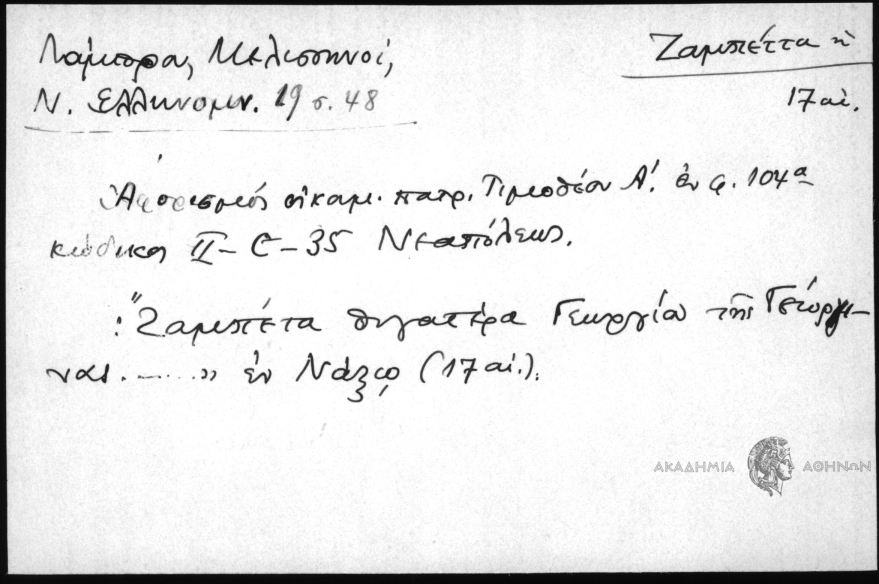 Λάμπρα, Μελισσηνοί,
Ν. Ἑλληνομν. 19 σ. 48
Ζαμπέττα ἡ
17 αἰ.
Ἀφορισμός οἰκουμ. πατρ. Τιμοθέου Α΄. ἐν φ. 104α
κώδικα II-C-35 Νεαπόλεως.
: "Ζαμπέτα θυγατέρα Γεωργίου τῆς Γεώργι-
νας......» ἐν Νάξῳ (17 αἰ.).
ΑΚΑΔΗΜΙΑ ΑΘΗΝΩΝ